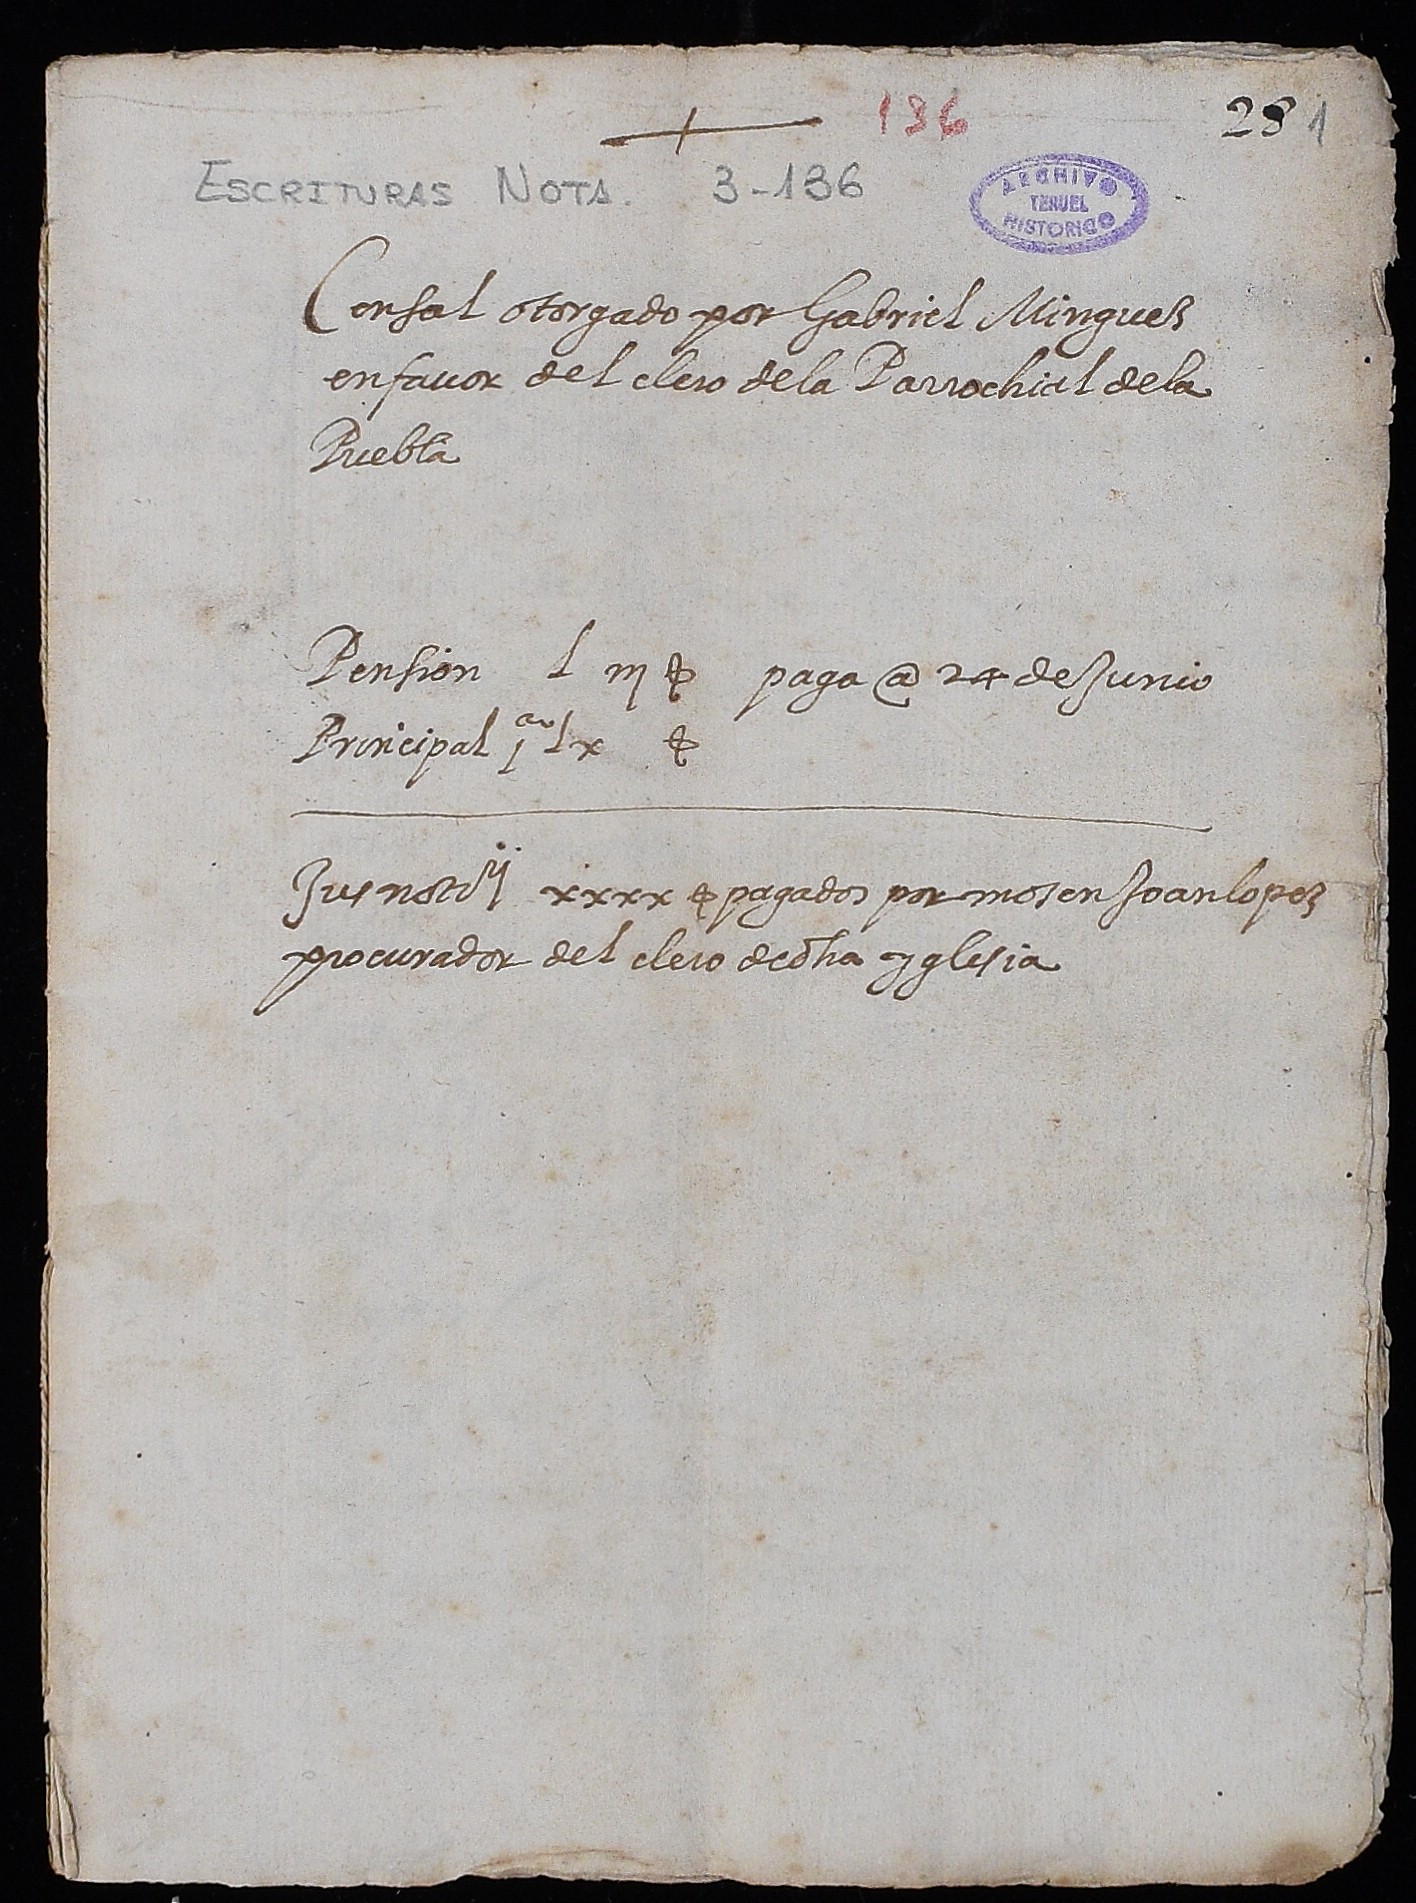 136
28 1
ESCRITURAS NOTA. 3-136
ARCHIVO
TERUEL
HISTORICO
Censal otorgado por Gabriel Minguez
en favor del clero de la Parrochial de la
Puebla
Pension l iij paga @ 24 de Junio
Principal lx
Jus notarii xxxx pagados por mosen Joan lopez
procurador del clero de dha yglesia